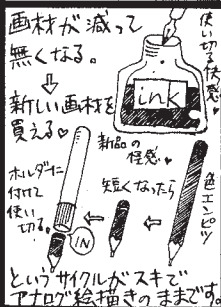 画材が減って
無くなる。
⇩
新しい画材を
買える♥
使い切る快感♥
ink
新品の
快感♥
色エンピツ
短くなったら
ホルダーに
付けて
使い
切る。
IN
というサイクルがスキで
アナログ絵描きのままです。